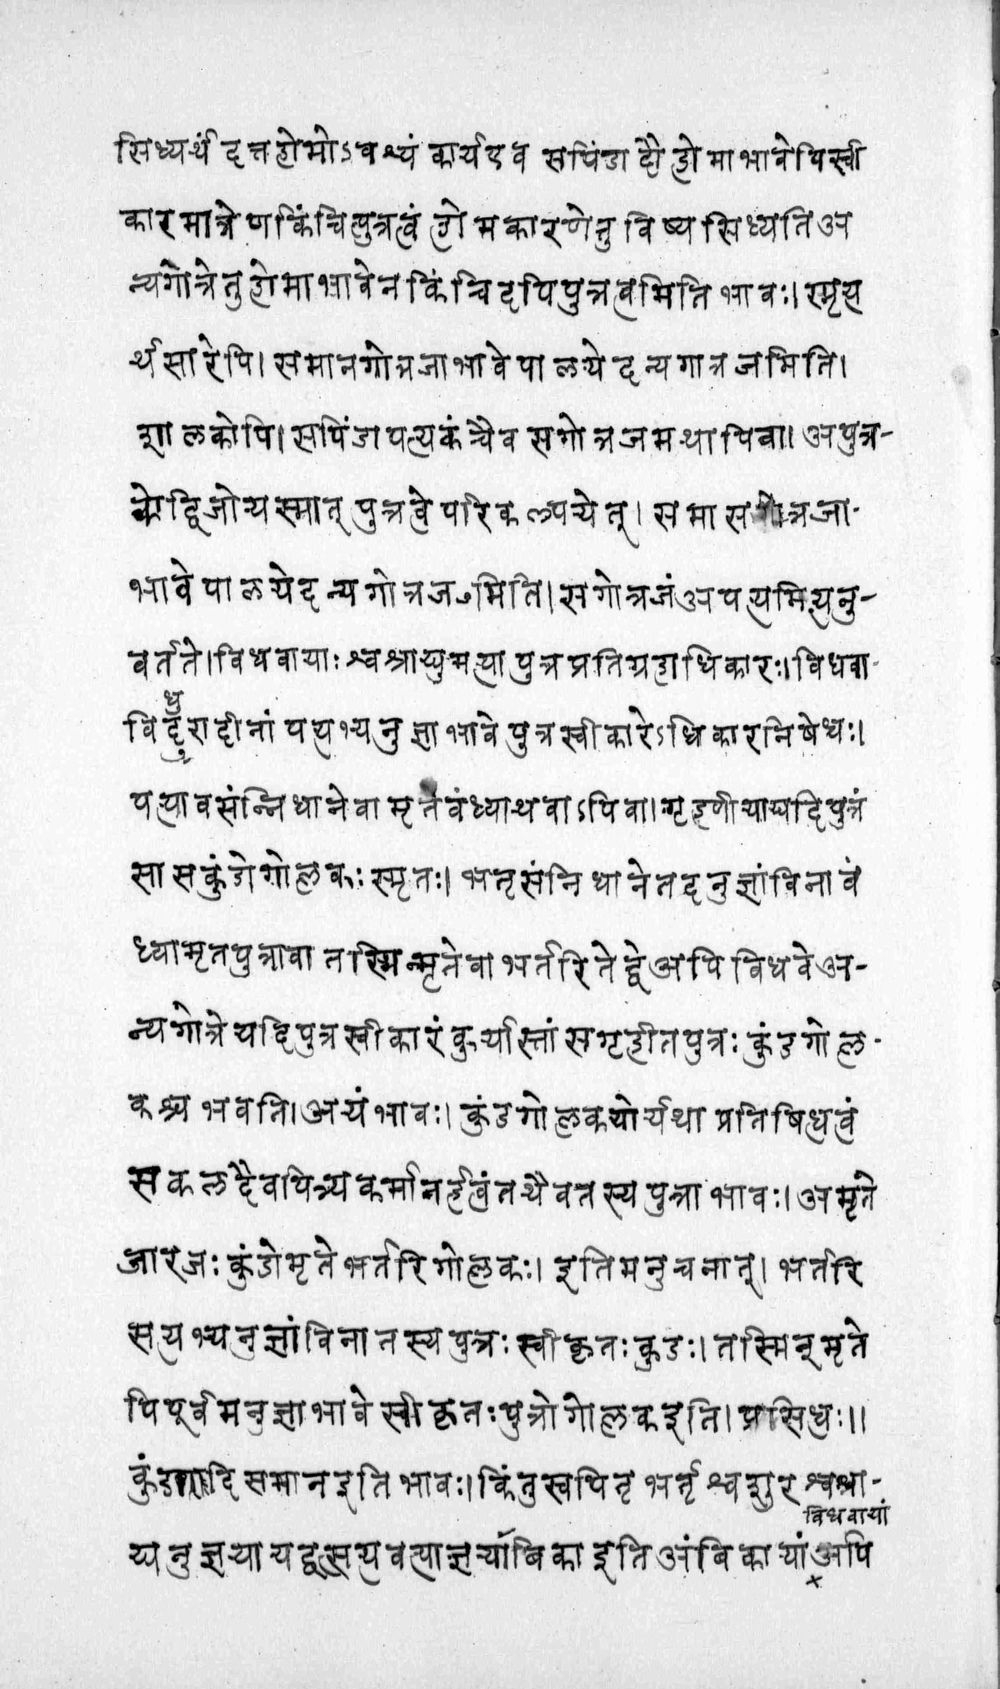 सिध्यर्थं दत्तहोमोऽवश्यं कार्यएव सपिंडादौ होमाभावेपिस्वी
कारमात्रेणकिंचित्पुत्रत्वं होमकारणेतु विष्यसिध्यतिअ
न्यगोत्रेतुहोमाभावेनकिंचिदपिपुत्रत्वमितिभावः। स्मृत्य
र्थसारेपि। समानगोत्रजाभावेपालयेदन्यगात्रजमिति।
शालकोपि। सपिंडापत्यकंचैव सगोत्रजमथापिवा। अपुत्र-
कोद्विजोयस्मात् पुत्रत्वे परिकल्पयेत्। समासगोत्रजा-
भावेपालयेदन्यगोत्रजमिति। सगोत्रजंअपत्यमित्यनु-
वर्तते। विधवायाः श्वश्राद्युमत्यापुत्रप्रतिग्रहाधिकारः। विधवा-
विधुरादीनां पत्यभ्यनुज्ञाभावे पुत्रस्वीकारेऽधिकारनिषेधः।
पत्यावसंन्निधानेवामृतेवंध्याथवाऽपिवा। गृह्णीयाद्यदिपुत्रं
सासकुंडोगोलकः स्मृतः। भतृसंनिधानेतदनुज्ञांविनावं
ध्यामृतपुत्रावा तस्मिन्मृतेवाभर्तरितेद्वेअपिविधवेअ-
न्यगोत्रेयदिपुत्रस्वीकारंकुर्यास्तांसगृहीतपुत्रः कुंडगोल-
कश्चभवति। अयंभावः। कुंडगोलकयोर्यथा प्रतिषिधत्वं
सकलदैवपित्र्यकर्मानर्हत्वंतथैवतस्यपुत्राभावः। अमृते
जारजः कुंडोमृतेभर्तरिगोलकः। इतिमनुवचनात्। भर्तरि
सत्यभ्यनुज्ञांविनातस्यपुत्रः स्वीकृतः कुडः। तस्मिन्मृते
पिपूर्वमनुज्ञाभावेस्वीकृतः पुत्रोगोलकइति। प्रसिधः।।
कुंडगादिसमानइतिभावः। किंतुस्वपितृभर्तृश्वशुरश्वश्रा-
विधवायां
द्यनुज्ञयायद्वत्सत्यवत्याज्ञयांबिका इतिअंबिकायांअपि